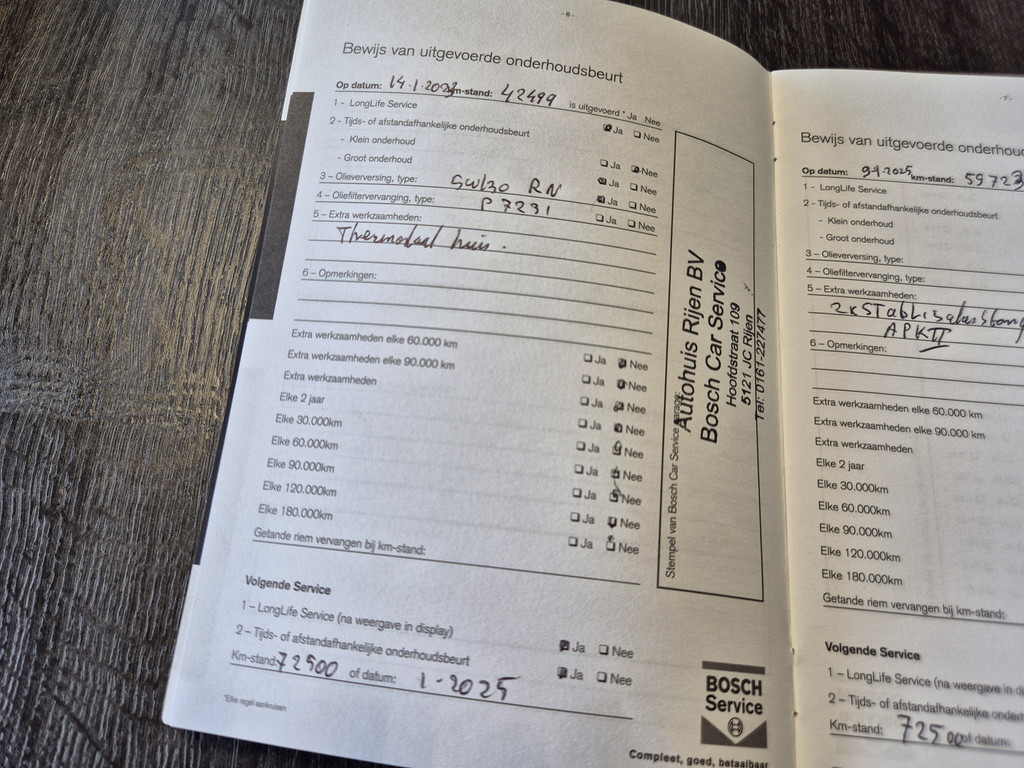 - 6 -
Bewijs van uitgevoerde onderhoudsbeurt
Op datum: 14-1-2023 km-stand: 42499 is uitgevoerd * Ja Nee
1 - LongLife Service Ja Nee
2 - Tijds- of afstandafhankelijke onderhoudsbeurt
- Klein onderhoud Ja Nee
- Groot onderhoud Ja Nee
3 – Olieverversing, type: 5W30 RN Ja Nee
4 – Oliefiltervervanging, type: P7231 Ja Nee
5 – Extra werkzaamheden:
huis.
6 – Opmerkingen:
Extra werkzaamheden elke 60.000 km Ja Nee
Extra werkzaamheden elke 90.000 km Ja Nee
Extra werkzaamheden Ja Nee
Elke 2 jaar Ja Nee
Elke 30.000km Ja Nee
Elke 60.000km Ja Nee
Elke 90.000km Ja Nee
Elke 120.000km Ja Nee
Elke 180.000km Ja Nee
Getande riem vervangen bij km-stand:
Stempel van Bosch Car Service garage:
Autohuis Rijen BV
Bosch Car Service
Hoofdstraat 109
5121 JC Rijen
Tel: 0161-227477
Volgende Service
1 – LongLife Service (na weergave in display) Ja Nee
2 – Tijds- of afstandafhankelijke onderhoudsbeurt Ja Nee
Km-stand: 72500 of datum: 1-2025
*Elke regel aankruisen
BOSCH
Service
Compleet, goed, betaalbaar
Bewijs van uitgevoerde onderhoud
Op datum: 9-1-2025 km-stand: 59723
1 - LongLife Service
2 - Tijds- of afstandafhankelijke onderhoudsbeurt
- Klein onderhoud
- Groot onderhoud
3 – Olieverversing, type:
4 – Oliefiltervervanging, type:
5 – Extra werkzaamheden:
2x
APK II
6 – Opmerkingen:
Extra werkzaamheden elke 60.000 km
Extra werkzaamheden elke 90.000 km
Extra werkzaamheden
Elke 2 jaar
Elke 30.000km
Elke 60.000km
Elke 90.000km
Elke 120.000km
Elke 180.000km
Getande riem vervangen bij km-stand:
Volgende Service
1 – LongLife Service (na weergave in di
2 – Tijds- of afstandafhankelijke onder
Km-stand: 72500 of datum: